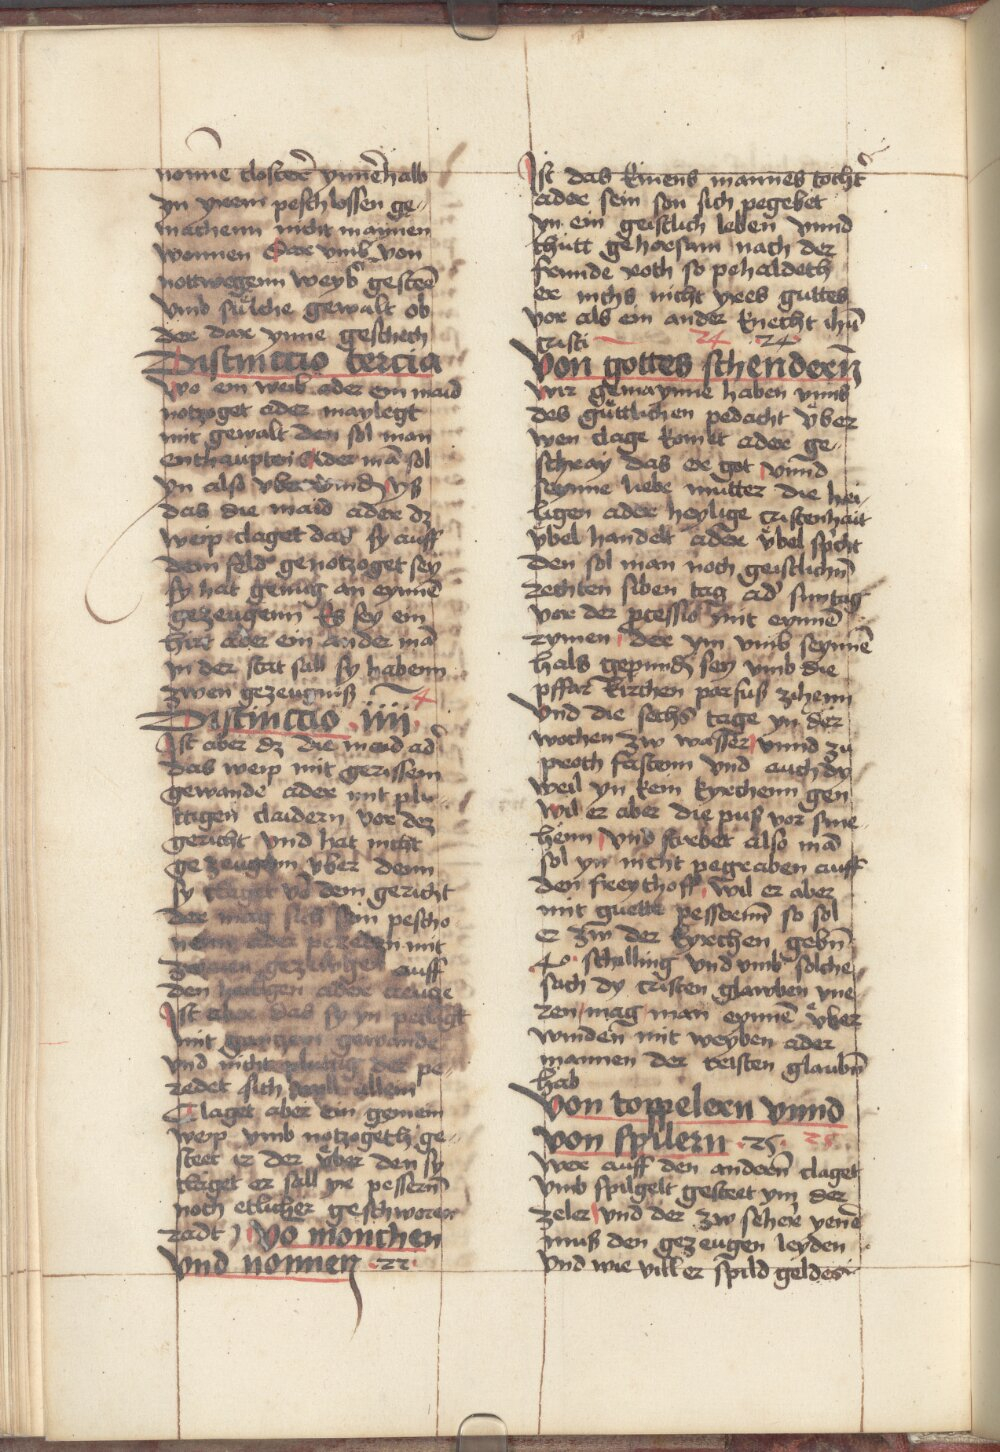 nonne closterr ynnerhalb
yn yrem peschlossen ge-
machenn nicht mannen
wonnen Dar vmb von
nottwegenn weyb gesteet
vmb sulche gewalt ob
der dar ynne geschech
Distinctio tercia
Wo ein weib oder ein maid
notzoget ader maylegt
mit gewalt den sol man
enthaupten oder man sol
yn also vberwinden yst
das die maid ader dz
weip claget das sy auff
dem feld genotzoget sey
sy hat genug an eynem
gezeugenn Es sey ein
hirt ader ein ander man
yn der stat sall sy habenn
zwen gezeugniß
Distinctio iiii 4
Ist aber dz die maid ader
das weip mit gerissem
gewande ader mit plu-
ttigen claidern vor dez
gericht vnd hat nicht
gezeugenn vber denn
sy claget vor dem gericht
der mag sich sein pescho
nenn ader peredenn mit
zwaien gezeugen auff
den hailigen ader creucze
Ist aber das sy yn peclagt
mit ganczem gewande
vnd nicht plutig der pe-
redet sich woll allein
Claget aber ein gemein
weip vmb notzogeth ge-
steet ir der vber den sy
claget er sall yr pessern
noch etlicher geschworen
radt Vo monchen
vnd nonnen 22
Ist das kinens mannes tochter
ader sein son sich pegebet
yn ein geistlich leben vnnd
thutt gehorsam nach der
freunde roth so pehaldeth
er nichs nicht yres guttes
vor als ein ander knecht ihesu
cristi 24 24
Von gottes schendernn
Wir gemaynne haben vnns
des guttlichen pedacht vber
wen clage komet ader ge-
schray das er got vnnd
seynne liebe mutter die hei-
ligen ader heylige cristenhait
vbel handelt ader vbel spricht
den sol man noch geistlichem
rechten siben tag ader suntag
vor der processio mit eynnem
rymen der ym vmb seynnen
hals gepunden sey vmb die
pffar kirchen parfuß zihenn
Vnd die sechs tage yn der
wochen zw wasser vnnd zu
proth fastenn vnd auch dy
weil yn kein kyrchenn gen
wil er aber die puß vor sme-
henn vnd stirbet also man
sol yn nicht pegraben auff
den freythoff wil er aber
mit guette pesserenn so sol
er zw der kyrchen geben
40 schilling vnd vmb solche
sach dy cristen glawben vne
ren mag man eynnen vber
winden mit weyben ader
mannen der cristen glauben
hab
Von toppelern vnnd
von spilern 25 25
Wer auff den anderen claget
vmb spilgelt gesteet ym der
zeler vnd der zw seher yenem
muß den gezeugen leyden
vnd wie vill er spild geldes